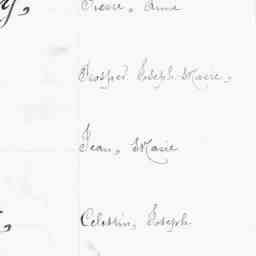 Pierre, Anne
Prosper Joseph Marie,
Jean, Marie
Célestin, Joseph